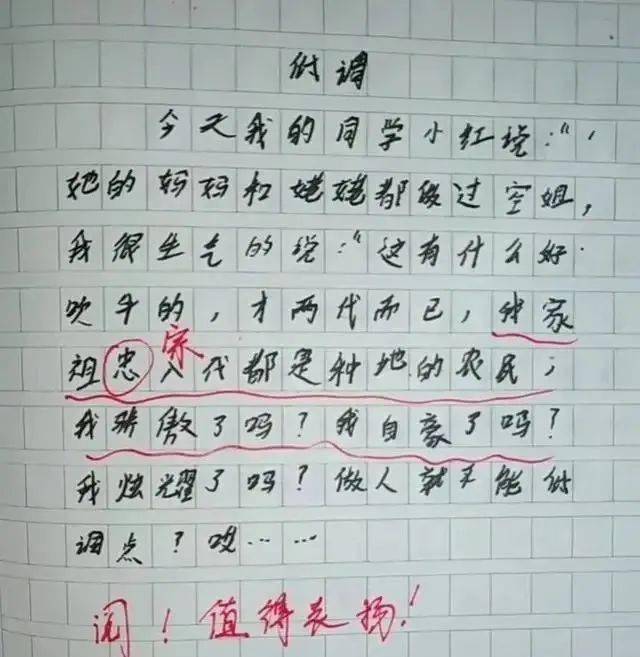 低调
今天我的同学小红说:"
她的妈妈和姥姥都做过空姐,
我很生气的说:"这有什么好
吹牛的,才两代而已,我家
祖忠八代都是种地的农民,
宗
我骄傲了吗?我自豪了吗?
我炫耀了吗?做人就不能低
调点?哎……
阅!值得表扬!